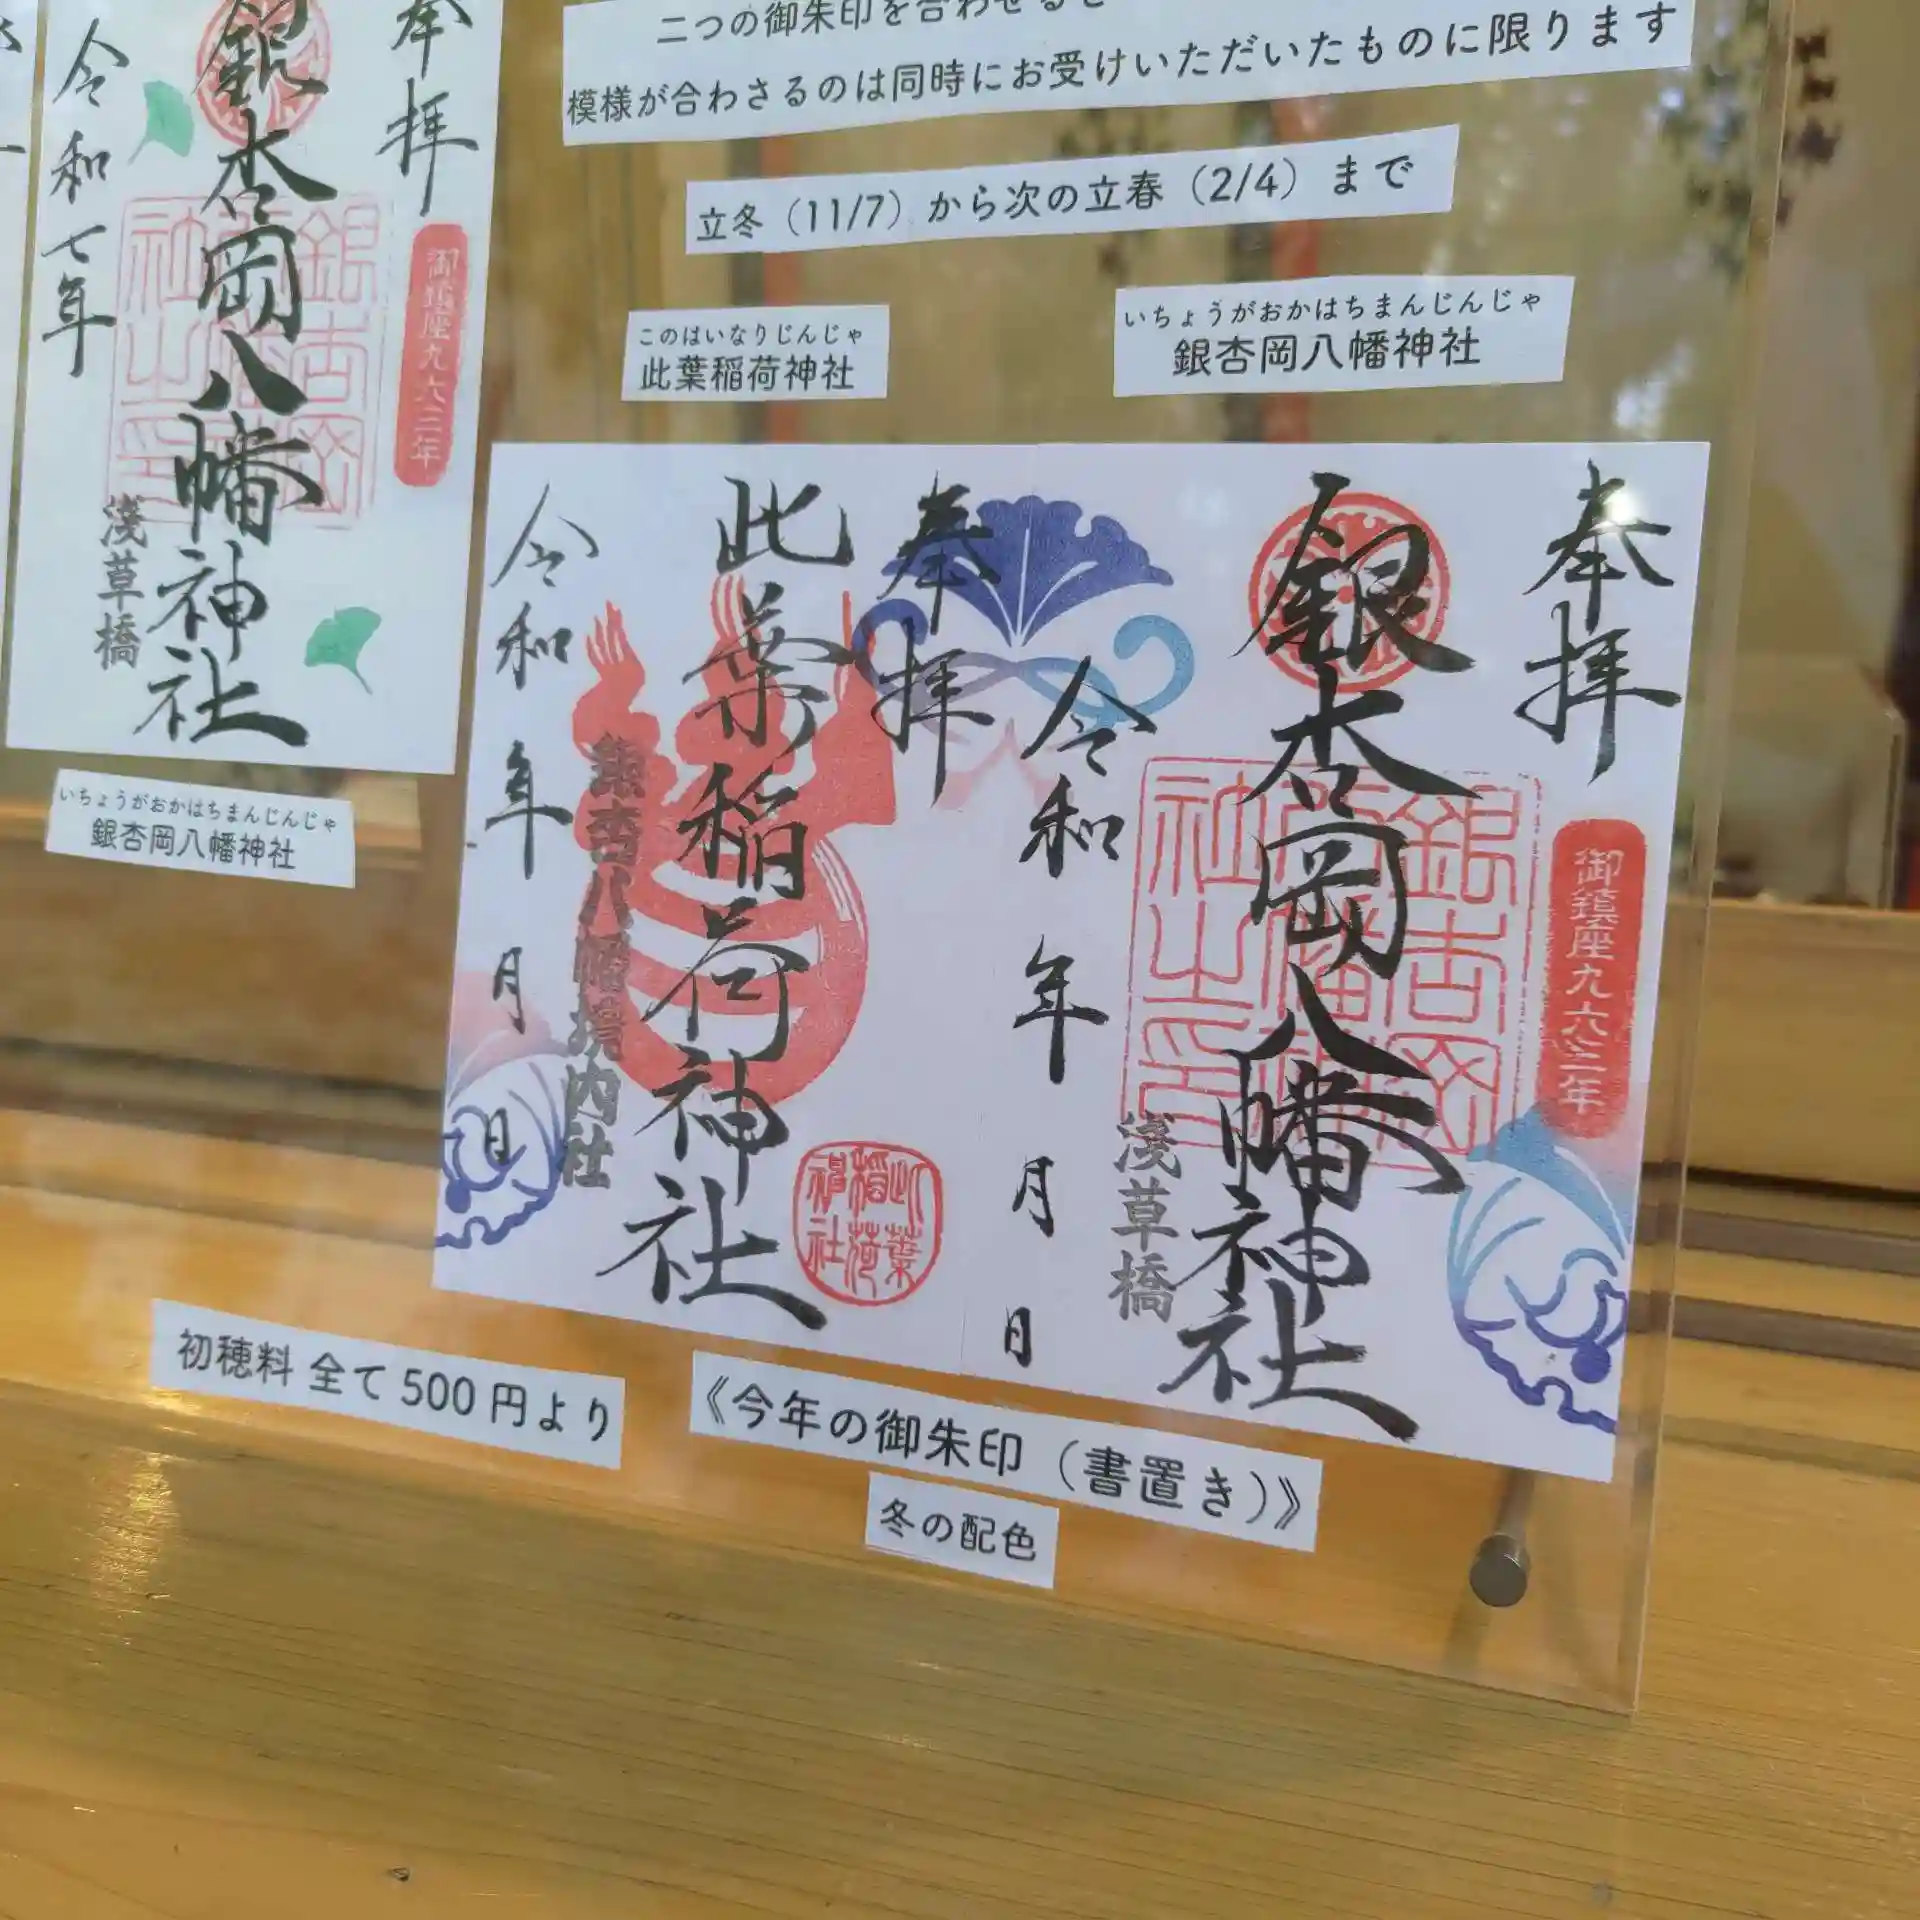 二つの御朱印を合わせると
模様が合わさるのは同時にお受けいただいたものに限ります
立冬（11/7）から次の立春（2/4）まで
このはいなりじんじゃ
此葉稲荷神社
いちょうがおかはちまんじんじゃ
銀杏岡八幡神社
奉拝
御鎮座九六三年
銀杏岡八幡神社
浅草橋
令和七年
いちょうがおかはちまんじんじゃ
銀杏岡八幡神社
奉拝
御鎮座九六三年
銀杏岡八幡神社
淺草橋
令和 年 月 日
奉拝
此葉稲荷神社
此葉稲荷神社
銀杏八幡境内社
令和 年 月 日
初穂料 全て500円より
《今年の御朱印（書置き）》
冬の配色